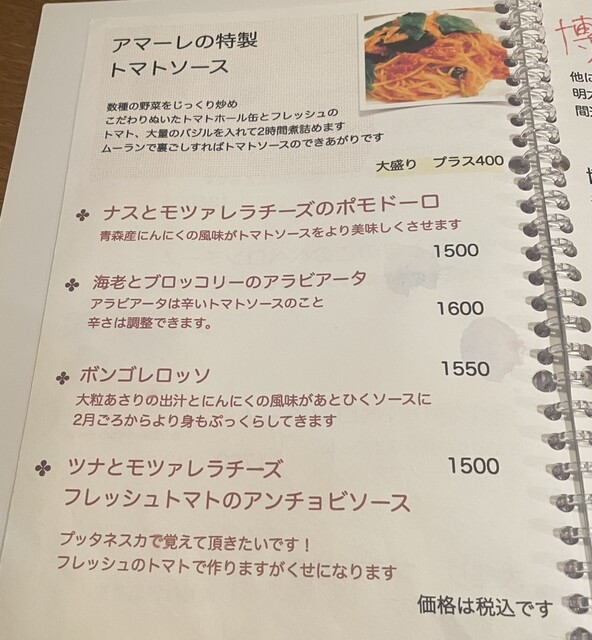 アマーレの特製
トマトソース
数種の野菜をじっくり炒め
こだわりぬいたトマトホール缶とフレッシュの
トマト、大量のバジルを入れて2時間煮詰めます
ムーランで裏ごしすればトマトソースのできあがりです
大盛り プラス400
ナスとモツァレラチーズのポモドーロ
青森産にんにくの風味がトマトソースをより美味しくさせます
1500
海老とブロッコリーのアラビアータ
アラビアータは辛いトマトソースのこと
辛さは調整できます。
1600
ボンゴレロッソ
1550
大粒あさりの出汁とにんにくの風味があとひくソースに
2月ごろからより身もぷっくらしてきます
ツナとモツァレラチーズ
1500
フレッシュトマトのアンチョビソース
プッタネスカで覚えて頂きたいです！
フレッシュのトマトで作りますがくせになります
価格は税込です
博
他に
明太